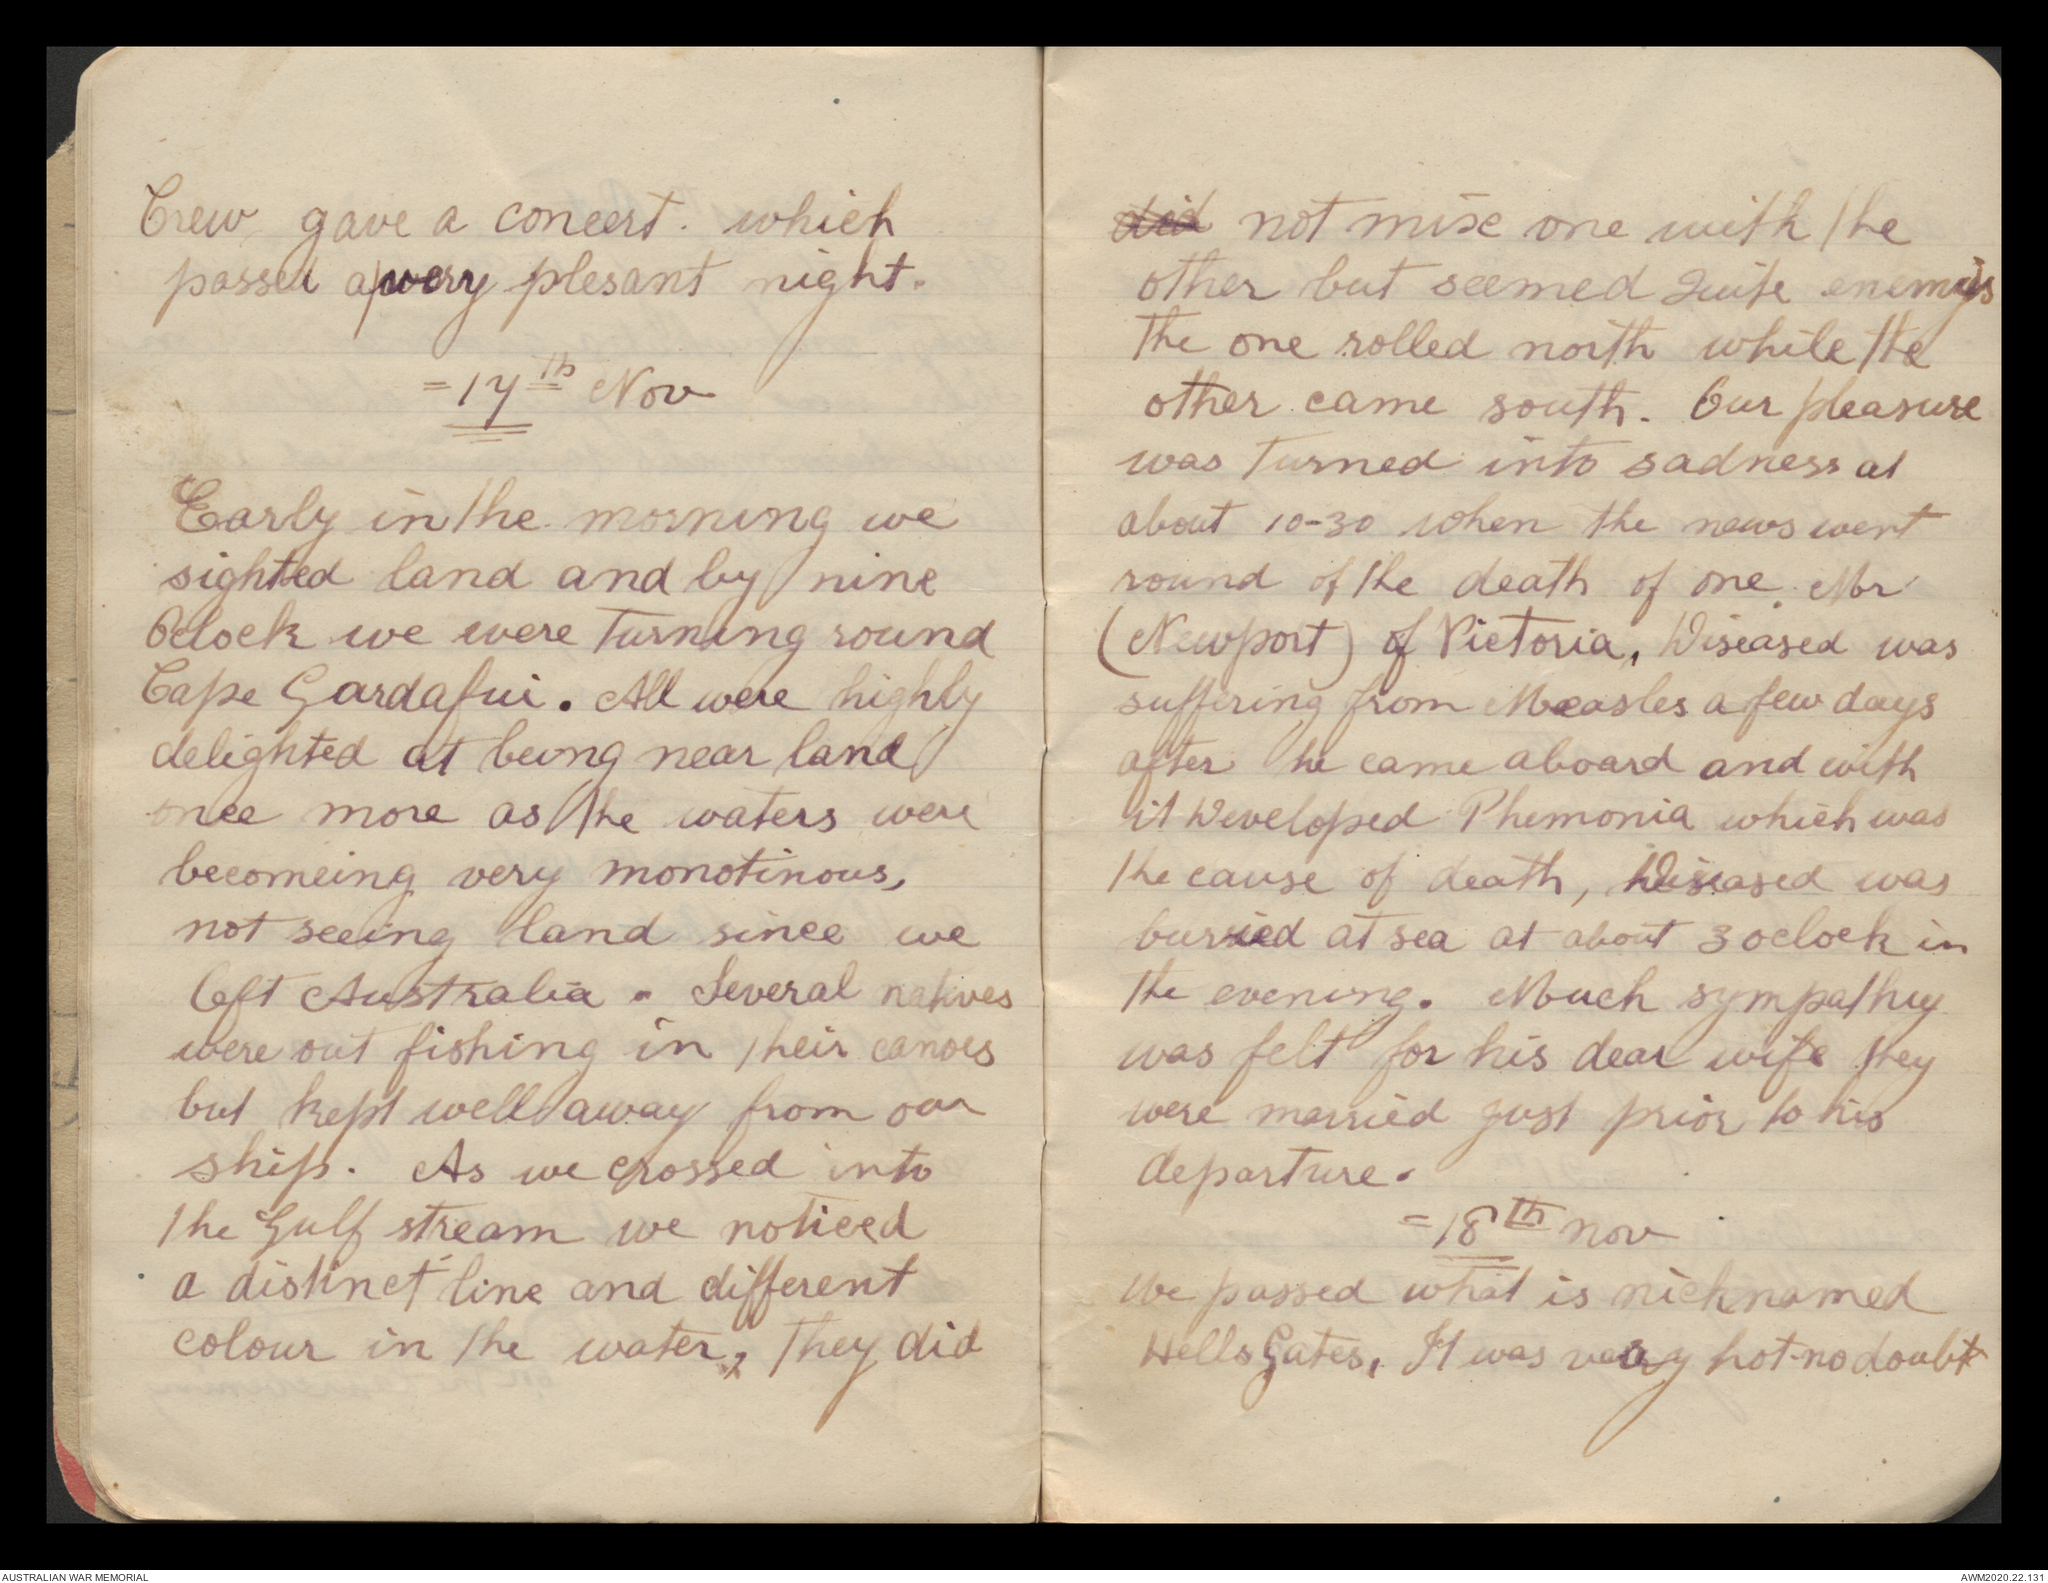 Crew gave a concert. which
passed a very plesant night.
= 17th Nov
Early in the morning we
sighted land and by nine
Oclock we were turning round
Cape Gardafui. All were highly
delighted at being near land
once more as the waters were
becomeing very monotinous,
not seeing land since we
left Australia. Several natives
were out fishing in their canoes
but kept well away from our
ship. As we crossed into
the Gulf stream we noticed
a distinct line and different
colour in the water, They did
did not mix one with the
other but seemed quite enemys
the one rolled north while the
other came south. Our pleasure
was turned into sadness at
about 10-30 when the news went
round of the death of one Mr
(Newport) of Victoria, Diseased was
suffering from Measles a few days
after he came aboard and with
it Developed Phemonia which was
the cause of death, Diseased was
burried at sea at about 3 oclock in
the evening. Much sympathy
was felt for his dear wife they
were married just prior to his
departure.
= 18th nov
We passed what is nicknamed
Hells Gates, It was very hot no doubt
AUSTRALIAN WAR MEMORIAL
AWM2020.22.131